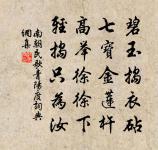 碧玉搗衣砧
七寶金蓮杵
高举徐徐下
輕搗只為汝
南朝民歌青陽度詞典
網集